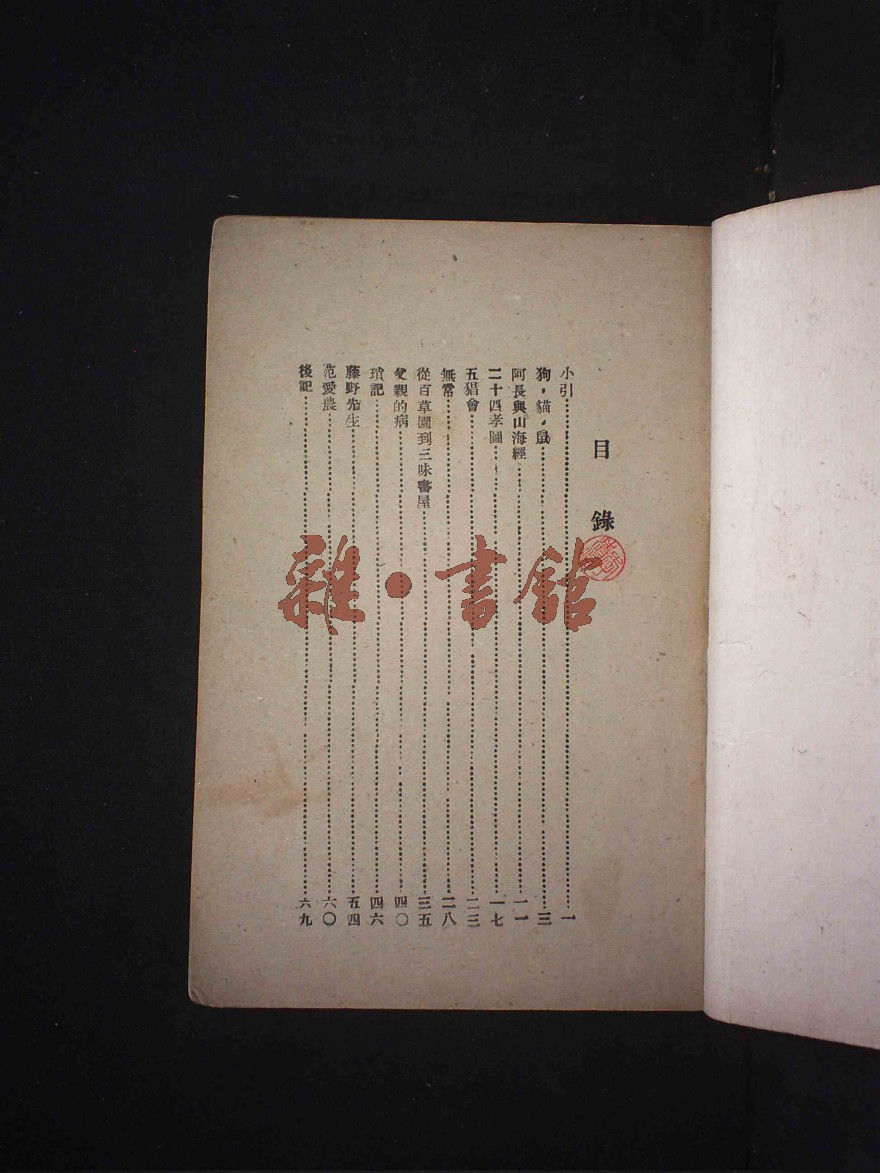 目錄
小引……一
狗・貓・鼠……三
阿長與山海經……一一
二十四孝圖……一七
五猖會……二三
無常……二八
從百草園到三味書屋……三五
父親的病……四〇
瑣記……四六
藤野先生……五四
范愛農……六〇
後記……六九
雜・書館